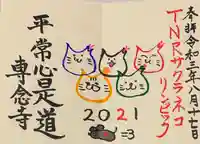 奉拝 令和三年八月十七日
TNRサクラネコ
リンピック
2021
平常心是道
専念寺